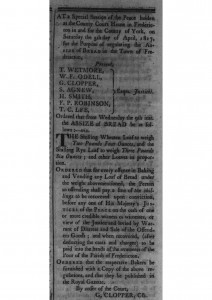 AT a Special Session of the Peace holden
at the County Court House in Fredericton
in and for the County of York, on
Saturday the
for the Purpose of regulating the
of BREAD in the Town of Fredericton,
Present,
T. WETMORE,
W. F. ODELL,
G. CLOPPER,
S. AGNEW,
H. SMITH,
T. P. ROBINSON,
T. C. LEE,
Esqrs. Justices.
Ordered that from Wednesday
the ASSIZE of BREAD be as follows
THE Shilling Wheaten Loaf to weigh
Two Pounds Four Ounces; and the
Shilling Rye Loaf to weigh Three Pounds
Ounces; and other Loaves in proportion.
ORDERED that the
and Vending any Loaf of Bread under
the weight abovementioned, the Person
so offending shall pay a fine of
to be recovered upon conviction,
before any one of His Majesty's Justices
of the PEACE on the oath of one
or more credible witness or witnesses, or
view of the Justice; and levied by Warrant
of Distress and Sale of the Offender's
Goods; and when recovered, (after
deducting the costs and charges) to be
paid into the hands of the overseers of the
Poor of the Parish of Fredericton.
ORDERED that the respective Bakers be
furnished with a Copy of the above regulations,
and that they be published in
the Royal Gazette.
By order of the Court,
G. CLOPPER, Clk.